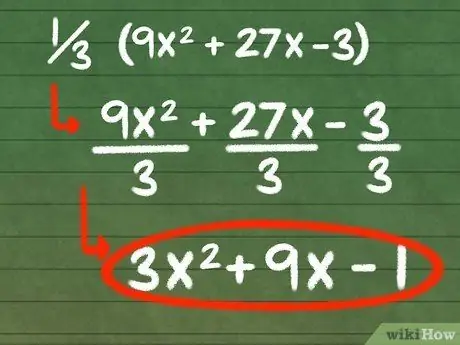 1/3 (9x² + 27x - 3)
9x²/3 + 27x/3 - 3/3
3x² + 9x - 1
wikiHow